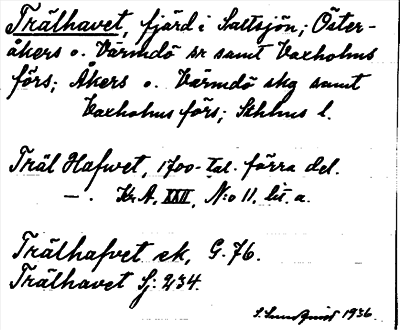 Trälhavet, fjärd i Saltsjön; Öster-
åkers o. Värmdö sr samt Vaxholms
förs; Åkers o. Värmdö skg samt
Vaxholms förs; Sthlms l.
Träl Hafwet, 1700-tal. förra del.
— . Kr. A. XXII, N:o 11, lit. a.
Trälhafvet ek, G. 76.
Trälhavet Sj. 234.
S. Lundquist 1936